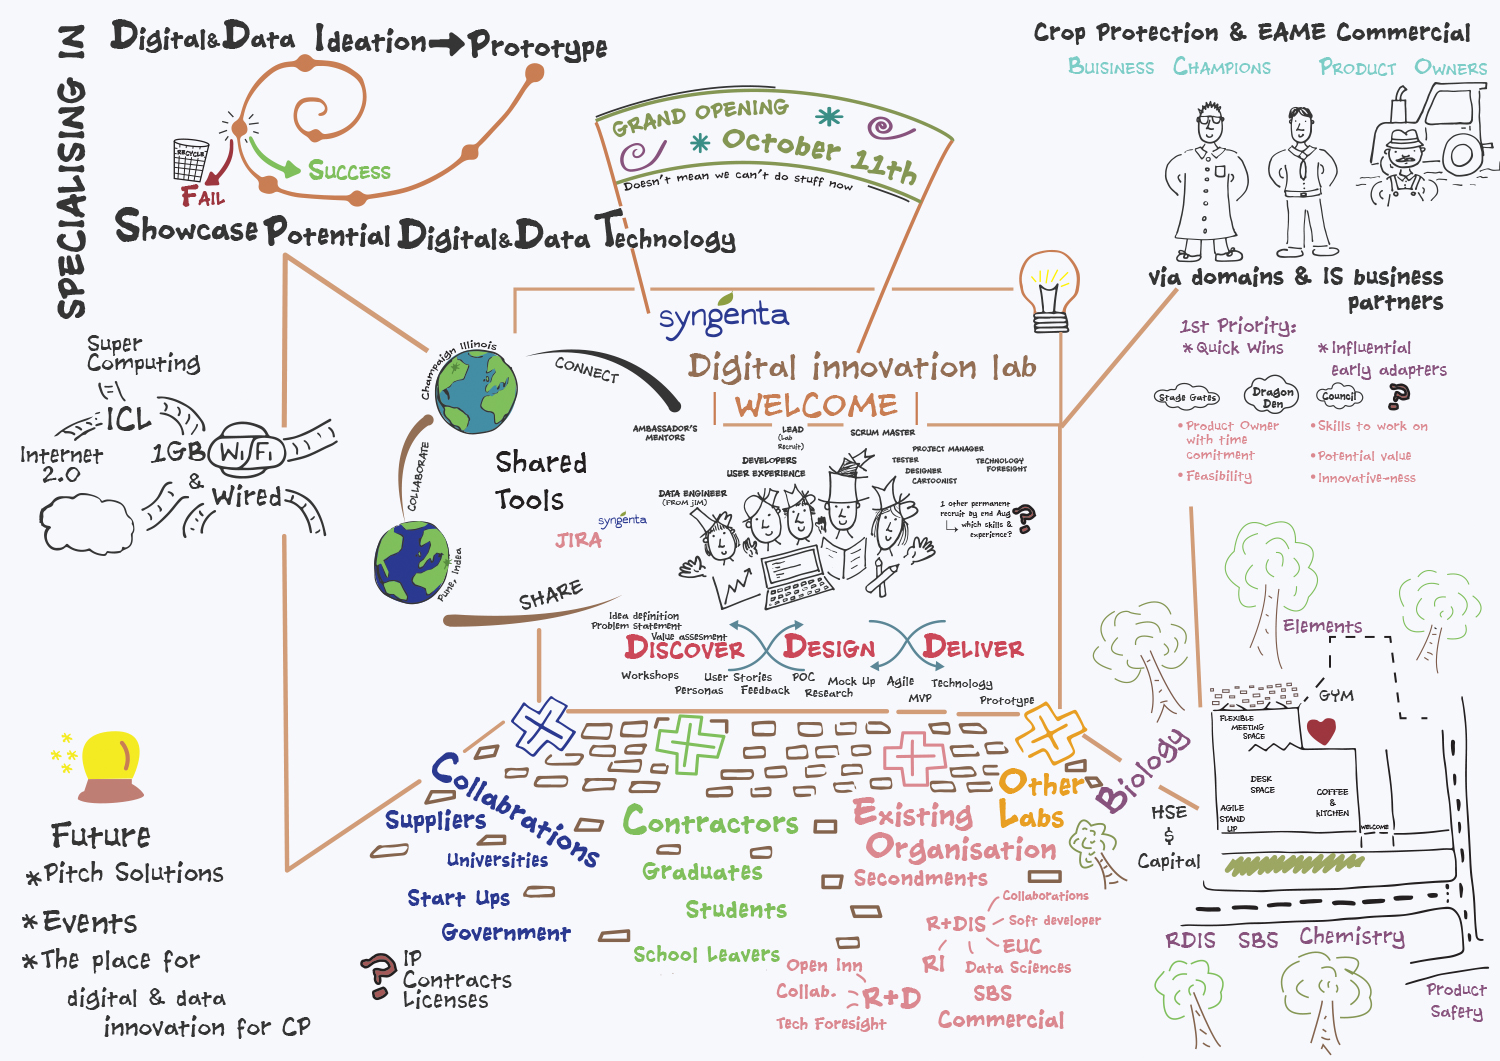 SPECIALISING IN
Digital&Data Ideation Prototype
RECYCLE
Success
Fail
Showcase Potential Digital&Data Technology
GRAND OPENING
October 11th
Doesn't mean we can't do stuff now
Crop Protection & EAME Commercial
Buisiness Champions Product Owners
via domains & IS business
partners
1st Priority:
* Quick Wins
* Influential
early adapters
Stage Gates
Dragon
Den
Council
?
• Product Owner
with time
comitment
• Feasibility
• Skills to work on
• Potential value
• Innovative-ness
Super
Computing
ICL
Internet
2.0
1GB
WiFi
&
Wired
Champaign Illinois
CONNECT
COLLABORATE
Pune, Indea
SHARE
syngenta
Digital innovation lab
WELCOME
Shared
Tools
syngenta
JIRA
AMBASSADOR'S
MENTORS
LEAD
(Lab
Recruit)
SCRUM MASTER
DEVELOPERS
USER EXPERIENCE
PROJECT MANAGER
TESTER
DESIGNER
CARTOONIST
TECHNOLOGY
FORESIGHT
DATA ENGINEER
(FROM JIM)
1 other permanent
recruit by end Aug
which skills &
experience?
?
Idea definition
Problem statement
Value assesment
Discover Design Deliver
Workshops
User Stories
Personas
Feedback
POC
Research
Mock Up
Agile
MVP
Technology
Prototype
Collabrations
Suppliers
Universities
Start Ups
Government
? IP
Contracts
Licenses
Contractors
Graduates
Students
School Leavers
Existing
Organisation
Secondments
Collaborations
R+DIS
Soft developer
EUC
RI
Data Sciences
Open Inn
Collab.
R+D
Tech Foresight
SBS
Commercial
Other
Labs
Biology
HSE
$
Capital
Elements
GYM
FLEXIBLE
MEETING
SPACE
DESK
SPACE
AGILE
STAND
UP
COFFEE
&
KITCHEN
WELCOME
RDIS SBS Chemistry
Product
Safety
Future
* Pitch Solutions
* Events
* The place for
digital & data
innovation for CP